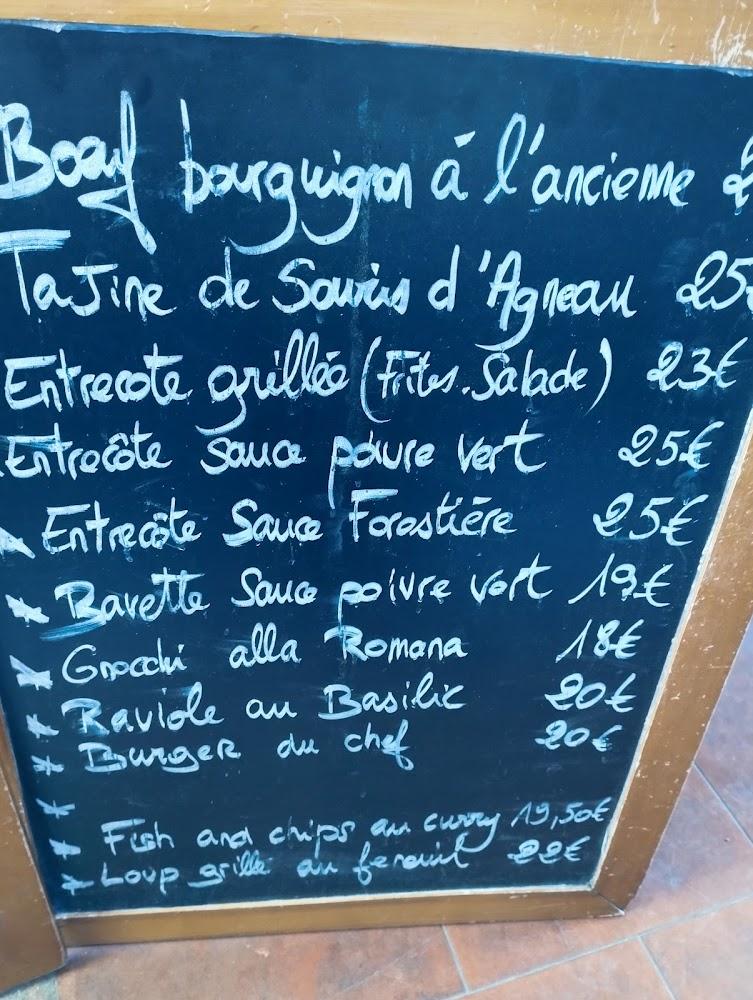 Bœuf bourguignon à l'ancienne 2
Tajine de Souris d'Agneau 25
Entrecote grillée (Frites. Salade) 23€
Entrecôte sauce poivre vert 25€
Entrecôte Sauce Forestière 25€
* Bavette Sauce poivre vert 19€
* Gnocchi alla Romana 18€
* Raviole au Basilic 20€
* Burger du chef 20€
*
* Fish and chips au curry 19,50€
* Loup grillé au fenouil 22€